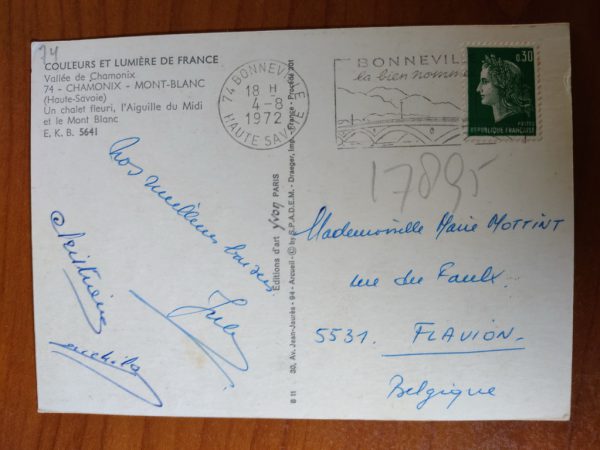 74
COULEURS ET LUMIÈRE DE FRANCE
Vallée de Chamonix
74 - CHAMONIX - MONT-BLANC
(Haute-Savoie)
Un chalet fleuri, l'Aiguille du Midi
et le Mont Blanc
E. K. B. 5641
74 BONNEVILLE
18 H
4-8
1972
HAUTE SAVOIE
BONNEVIL
la bien nommé
0,30
POSTES
REPUBLIQUE FRANÇAISE
17895
Nos meilleurs baisers
Jules
Christiane
Mademoiselle Marie MOTTINT
rue du Faulx
5531. FLAVION.
Belgique
Editions d'art yvon PARIS
B 11 30, Av. Jean-Jaurès - 94 - Arcueil - © by S.P.A.D.E.M. - Draeger, Imp. - France - Procédé 301